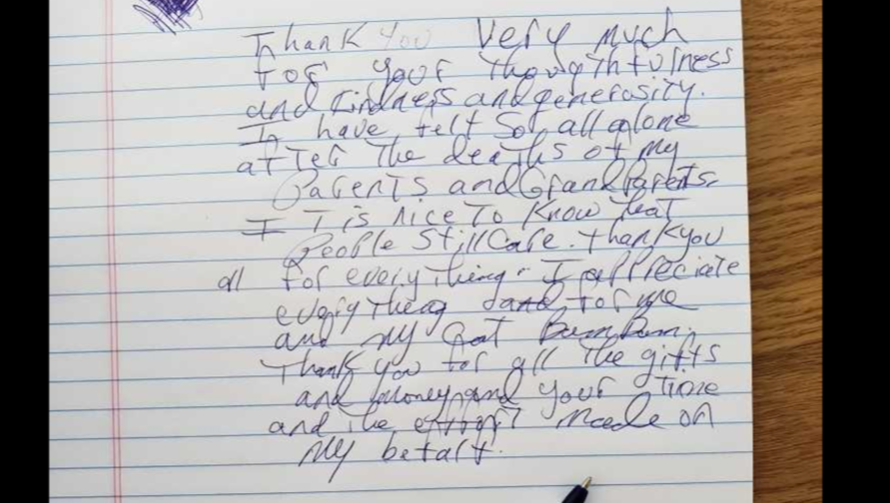 Thank you very much
for your thoughtfulness
and kindness and generosity.
I have felt so all alone
after the deaths of my
Parents and GrandParents.
It is nice To Know that
People still Care. thank you
all for everything. I appreciate
everything done for me
and my Cat Bam Bam.
Thank you for all the gifts
and money and your time
and the effort made on
my behalf.